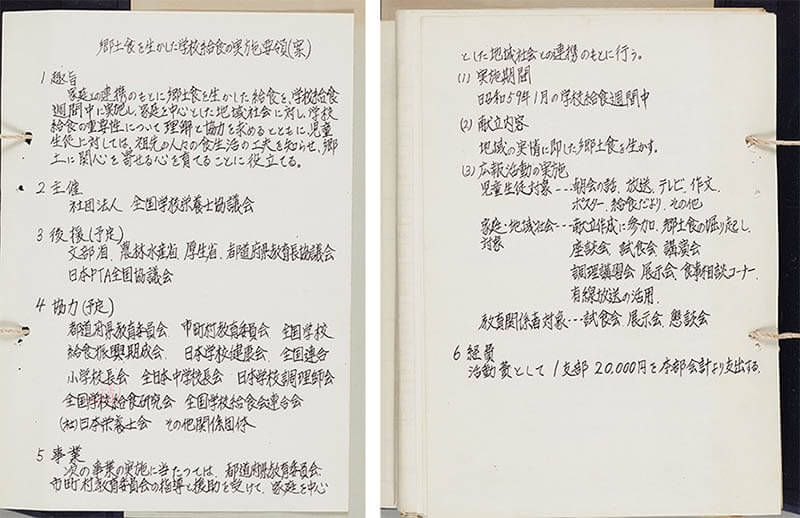 郷土食を生かした学校給食の実施要領(案)
1 趣旨
家庭との連携のもとに郷土食を生かした給食を、学校給食
週間中に実施し、家庭を中心とした地域社会に対し、学校
給食の重要性について理解と協力を求めるとともに、児童
生徒に対しては、祖先の人々の食生活の工夫を知らせ、郷
土に関心を寄せる心を育てることに役立てる。
2 主催
社団法人 全国学校栄養士協議会
3 後援(予定)
文部省、農林水産省、厚生省、都道府県教育長協議会
日本PTA全国協議会
4 協力(予定)
都道府県教育委員会 市町村教育委員会 全国学校
給食振興期成会 日本学校健康会 全国連合
小学校長会 全日本中学校長会 日本学校調理師会
全国学校給食研究会 全国学校給食会連合会
(社)日本栄養士会 その他関係団体
5 事業
次の事業の実施に当たっては、都道府県教育委員会
市町村教育委員会の指導と援助を受けて、家庭を中心
とした地域社会との連携のもとに行う。
(1) 実施期間
昭和59年1月の学校給食週間中
(2) 献立内容
地域の実情に即した郷土食を生かす。
(3) 広報活動の実施
児童生徒対象---朝会の話、放送、テレビ、作文、
ポスター、給食だより、その他
家庭・地域社会---献立作成に参加、郷土食の掘り起し、
対象 座談会、試食会、講演会
調理講習会、展示会、食事相談コーナー、
有線放送の活用、
教育関係者対象---試食会、展示会、懇談会
6 経費
活動費として1支部20,000円を本部会計より支出する。